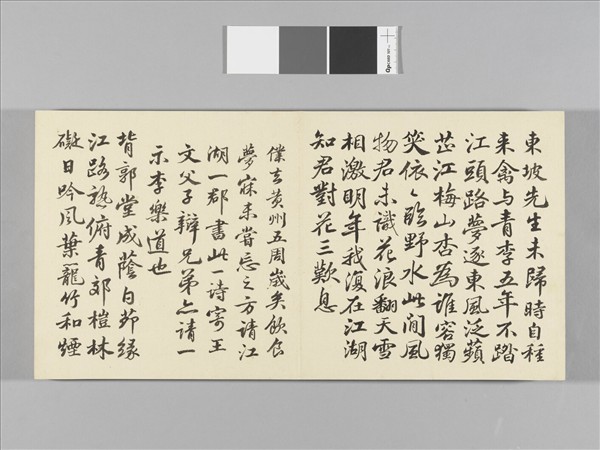 東坡先生未歸時自種
来禽与青李五年不踏
江頭路夢逐東風泛蘋
芷江梅山杏為誰容獨
笑依〻臨野水此間風
物君未識花浪翻天雪
相激明年我復在江湖
知君對花三歎息
僕去黄州五周歲矣飲食
夢寐未嘗忘之方請江
湖一郡書此一詩寄王
文父子辯兄弟亦請一
示李樂道也
背郭堂成蔭白茆緣
江路熟俯青郊榿林
礙日吟風葉籠竹和煙